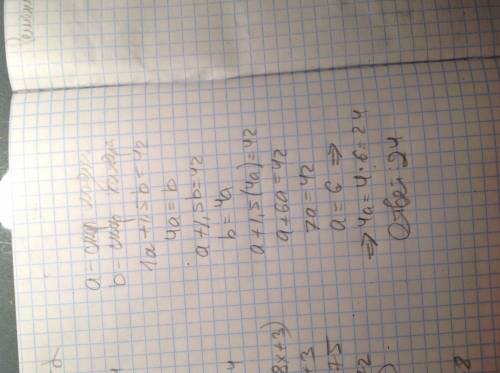 a - скор
b - скор
1a + 1,5b = 42
4a = b
a + 1,5b = 42
b = 4a
a + 1,5(4a) = 42
a + 6a = 42
7a = 42
a = 6 ⇒
⇒ 4a = 4·6 = 24
Ответ: 24
8x+3)
+3
75
8